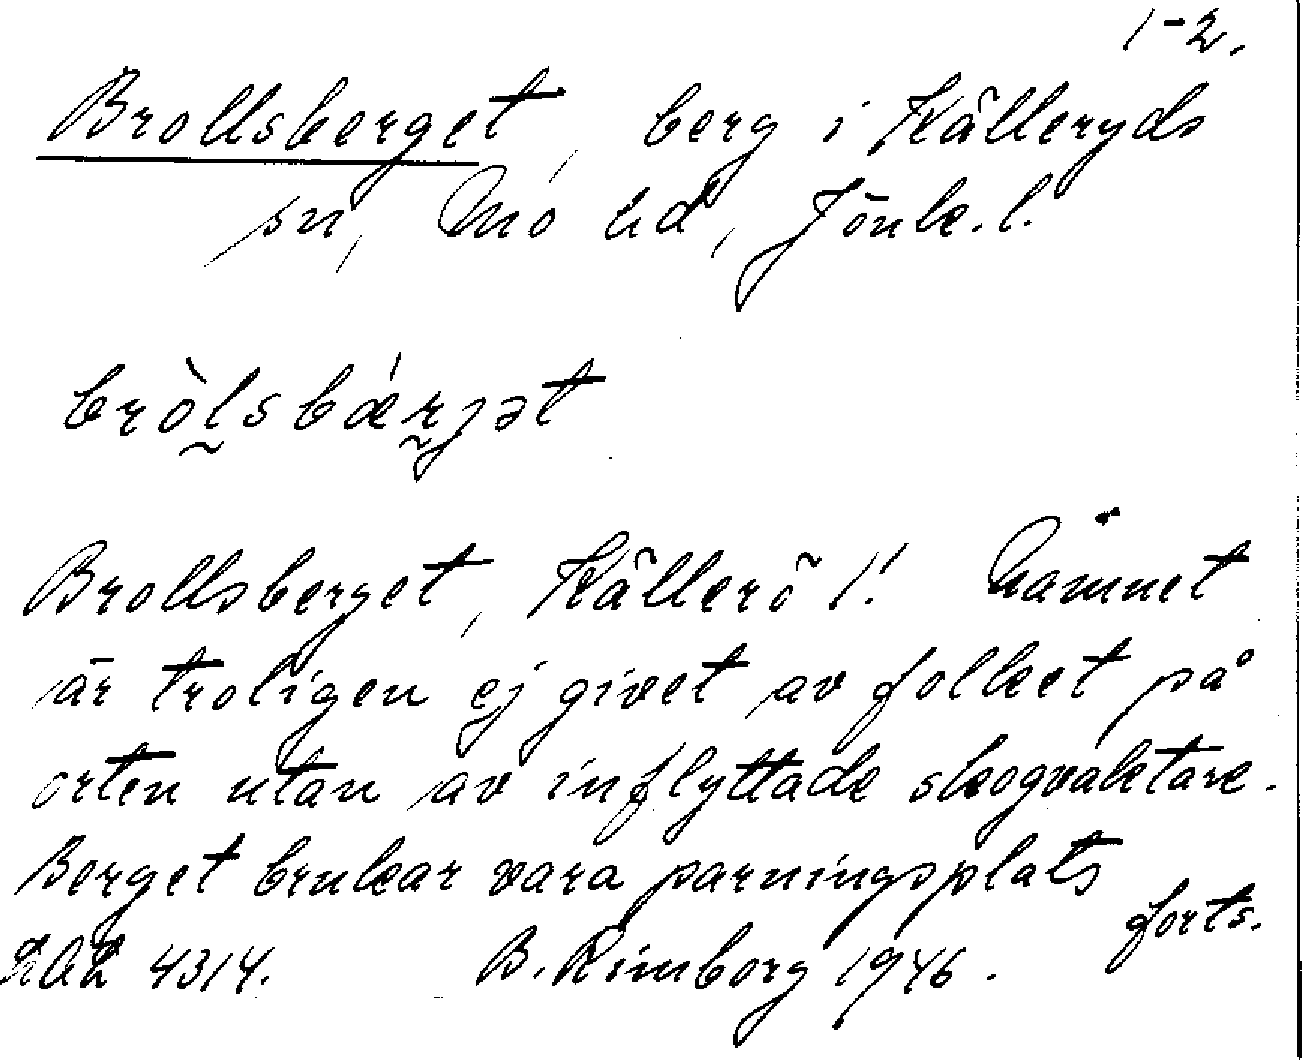 1-2.
Brollsberget, berg i Kålleryds
sn, Mo hd, Jönk. l.
bròl̰sbǽr̰jət
Brollsberget, Kållerö 1! Namnet
är troligen ej givet av folket på
orten utan av inflyttade skogvaktare.
Berget brukar vara parningsplats
forts.
4314. B. Rimborg 1946.